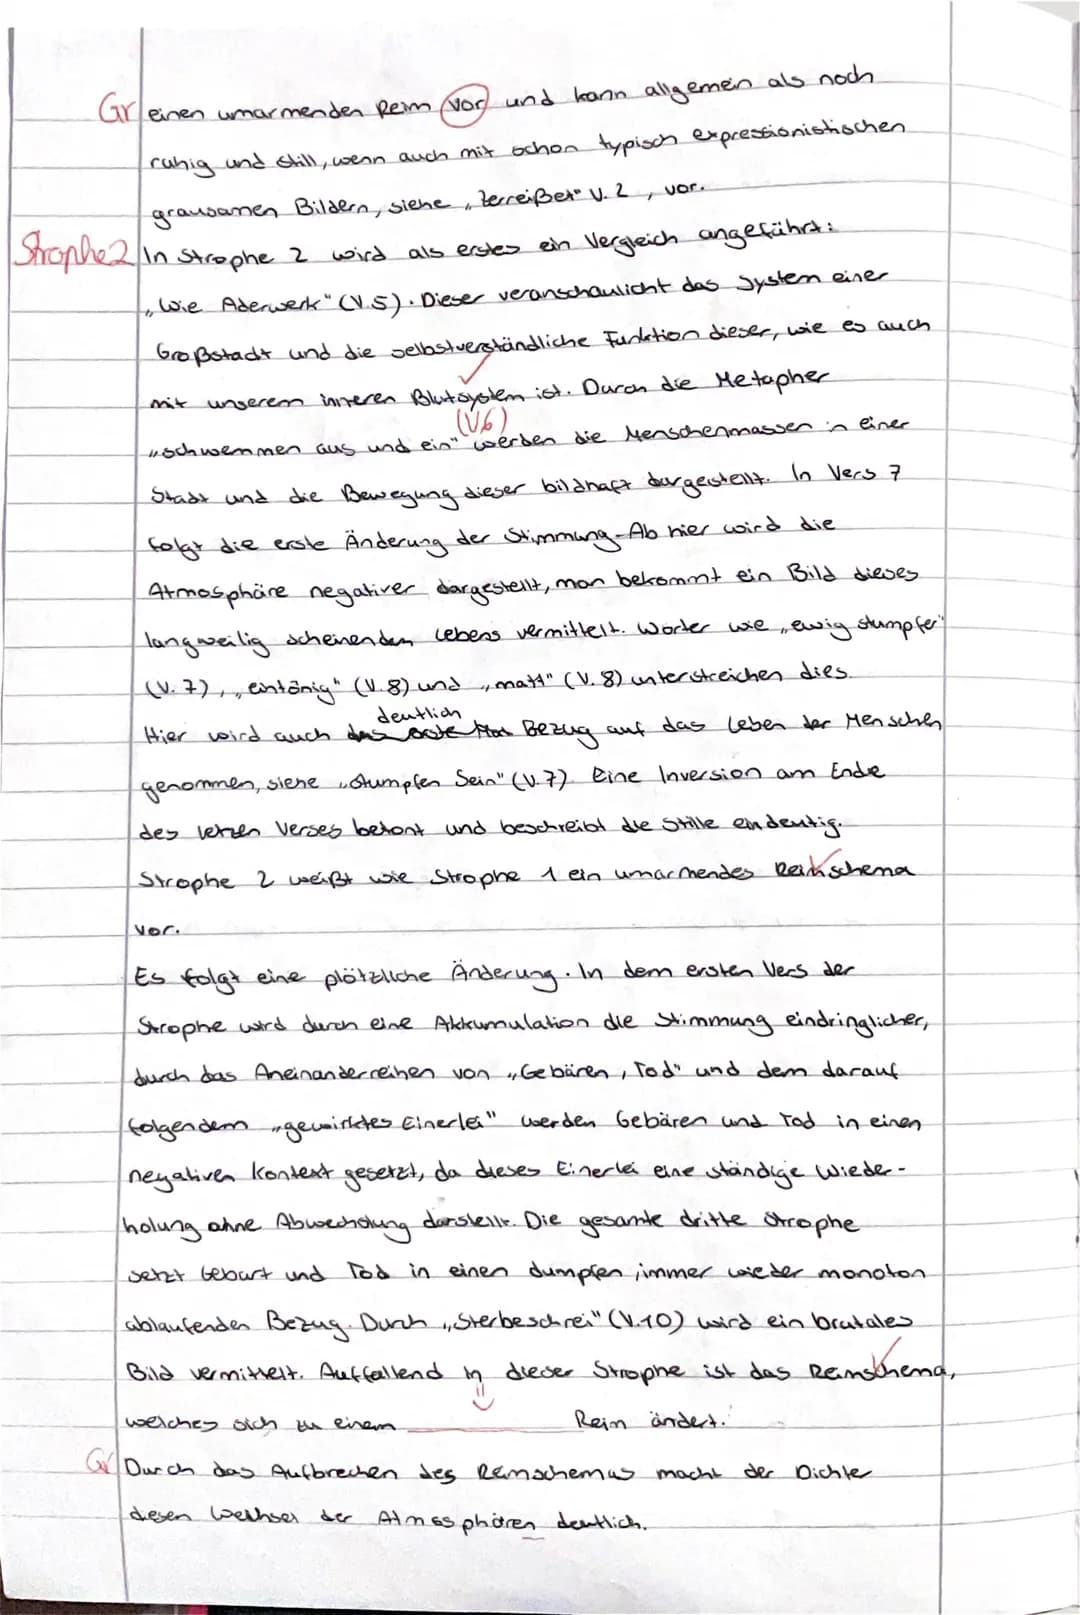 Gr einen umarmenden Reim vor und kann allgemein als noch
ruhig und still, wenn auch mit schon typisch expressionistischen
grausamen Bildern, siehe „Zerreißet" V. 2, vor.
Strophe 2 In Strophe 2 wird als erstes ein Vergleich angeführt:
„Wie Aderwerk" (V.5). Dieser veranschaulicht das System einer
Großstadt und die selbstverständliche Funktion dieser, wie es auch
mit unserem inneren Blutsystem ist. Durch die Metapher
(V.6)
„schwemmen aus und ein" werden die Menschenmassen in einer
Stadt und die Bewegung dieser bildhaft dargestellt. In Vers 7
folgt die erste Änderung der Stimmung. Ab hier wird die
Atmosphäre negativer dargestellt, man bekommt ein Bild dieses
langweilig scheinenden Lebens vermittelt. Wörter wie „ewig stumpfer"
(V. 7), „eintönig" (V. 8) und „matt" (V. 8) unterstreichen dies.
deutlich
Hier wird auch das erste Mal Bezug auf das Leben der Menschen
genommen, siehe „stumpfen Sein" (V. 7). Eine Inversion am Ende
des letzen Verses betont und beschreibt die Stille eindeutig.
Strophe 2 weißt wie Strophe 1 ein umarmendes Reimschema
vor.
Es folgt eine plötzliche Änderung. In dem ersten Vers der
Strophe wird durch eine Akkumulation die Stimmung eindringlicher,
durch das Aneinanderreihen von „Gebären, Tod" und dem darauf
folgendem „gewirktes Einerlei" werden Gebären und Tod in einen
negativen Kontext gesetzt, da dieses Einerlei eine ständige Wieder-
holung ohne Abwechslung darstellt. Die gesamte dritte Strophe
setzt Geburt und Tod in einen dumpfen, immer wieder monoton
ablaufenden Bezug. Durch „Sterbeschrei" (V.10) wird ein brutales
Bild vermittelt. Auffallend in dieser Strophe ist das Reimschema,
welches sich zu einem Reim ändert.
Gr Durch das Aufbrechen des Reimschemas macht der Dichter
diesen Wechsel der Atmosphären deutlich.